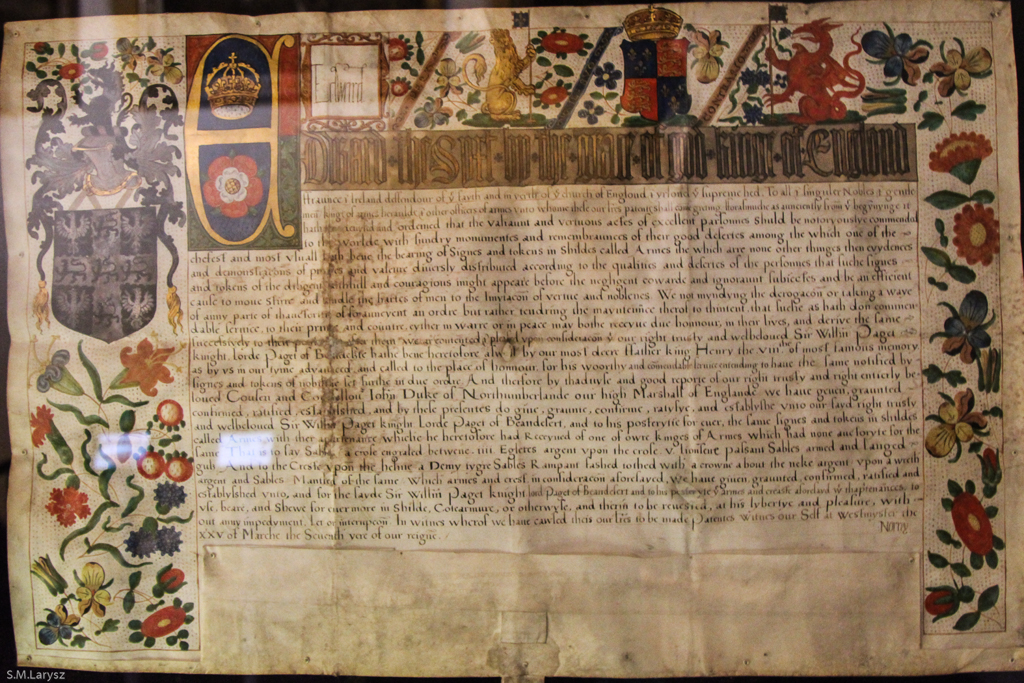 Edward
CONTRARIA
Edward the Sext by the grace of God kinge of England
ffraunce & Ireland deffendour of yͤ faith and in yerth of yͤ church of England & yrelond yͤ supreme hed. To all & singuler Nobles & gentils
kings of armes herauldes & other officers of armes unto whome these our lr̃es patents shall come greting. fforasmuche as aunciently from yͤ begynynge it
hath ordeined that the valiaunt and vertuous actes of excellent parsonnes shuld be notoryously commended
to the Worlde with sundry monumentes and remembraunces of their good desertes among the which one of the
chefest and most usuall hath bene the bearing of Signes and tokens in Shildes called Armes the which arre none other thinges then evydences
and demonstracions of prowes and valeure diversly distributed according to the qualities and desertes of the persounes that suche signes
and tokens of the diligent faithfull and couragious might appeare before the negligent cowarde and ignoraunt subiectes and be an efficient
cause to move stirre and kindle the hartes of men to the Imytacon of vertue and noblenes. We not myndyng the derogacon or taking a waye
of anny parte of thauctorite of an ordre but rather tendring the mayntennce therof to thintent that suche as hath don commen
dable service, to their prince and countre eyther in warre or in peace may bothe receyve due honnour, in their lives, and derive the same
successively to their after them we consideracon yͤ our right trusty and welbeloved Sir Willm Paget
knight, lorde Paget of Beaudesert hathe bene heretofore by our most deere ffather king Henry the viii. of most famous memory
as by us in our tyme advanced, and called to the place of honnour, for his woorthy and commendable service intending to have the same notified by
signes and tokens of nobilite set furthe in due ordre. And therfore by thadvyse and good reporte of our right trusty and right entierly be-
loved Cousen and Counsellour John Duke of Northumberlande our high Marshall of Englande we have geven, graunted
confirmed, ratified, established, and by these presentes do give, graunte, confirme, ratyfye, and establyshe unto our sayd right trusty
and welbeloved Sir Willm Paget knight Lorde Paget of Beaudesert, and to his posteryte for ever, the same signes and tokens in shildes
called Armes with ther which he heretofore had Receyved of one of owre kinges of Armes which had none auctoryte for the
same. That is to say Sable a crose engraled betwene iiii Egletes argent upon the crose v lionseux passant Sables armed and langed
guls And to the Creste upon the helme a Demy tygre Sables Rampant tashed tothed with a crowne about the neke argent upon a wreth
argent and Sables Mantled of the same Which armes and crest in consideracon aforesayed, we have given, graunted, confirmed, ratified and
establyshed unto, and for the sayde Sir Willm Paget knight lord Paget of Beaudesert and to his posterite yͤ armes and creaste aforsard to
use, beare, and Shewe for evermore in Shilde, Cotearmure, or otherwyse, and therin to be revested, at his lybertye and pleasure, with
out anny impedyment, Let or interupcon. In witnes wherof we have cawsed thes our lr̃es to be made Patentes Witnes our Self at Westmyster the
XXV of Marche the Seventh yere of our reigne.
S.M.Larysz